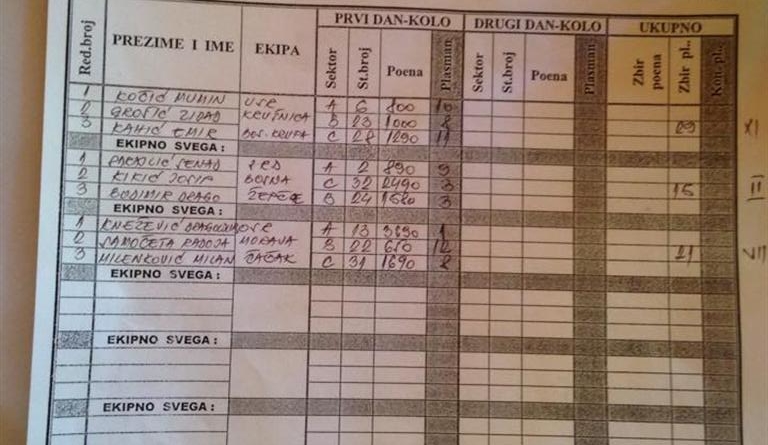 PRVI DAN-KOLO DRUGI DAN-KOLO UKUPNO
Red.broj PREZIME I IME EKIPA Sektor St.broj Poena Plasman Sektor St.broj Poena Plasman Zbir poena Zbir pl.. Kon. pl..
1 KOČIĆ MUMIN USR A 6 800 10
2 ZIJAD KRUŠNICA B 23 1000 8
3 KAHIĆ EMIR BOS. KRUPA C 28 1290 11 29 X
EKIPNO SVEGA :
1 SENAD SRD A 2 890 9
2 KIKIĆ JOSIP BOSNA C 32 2490 3
3 BODIMIR DRAGO ŽEPČE B 24 1580 3 15 III
EKIPNO SVEGA :
1 KNEŽEVIĆ DRAGOLJUB USR A 13 3690 1
2 SAMOČETA RADOJA MORAVA B 22 650 12
3 MILENKOVIĆ MILAN ČAČAK C 31 1690 8 21 VII
EKIPNO SVEGA :
EKIPNO SVEGA :
EKIPNO SVEGA :